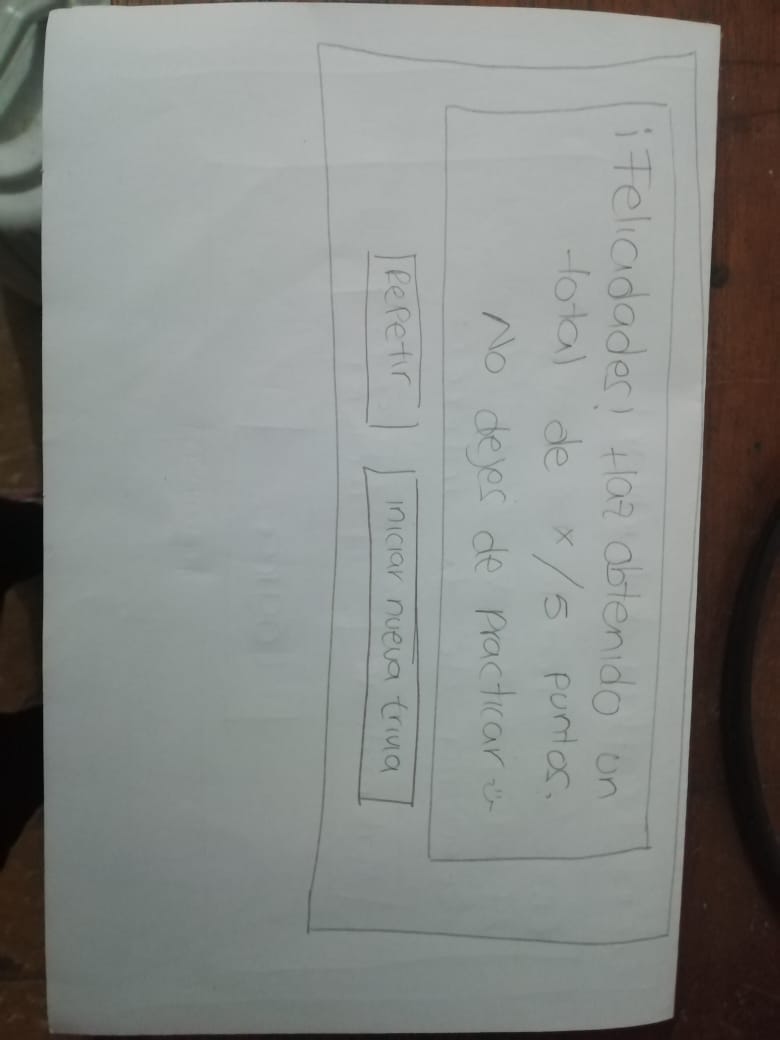 ¡Felicidades! Haz obtenido un
total de x/5 puntos.
No dejes de practicar :)
Repetir
iniciar nueva trivia